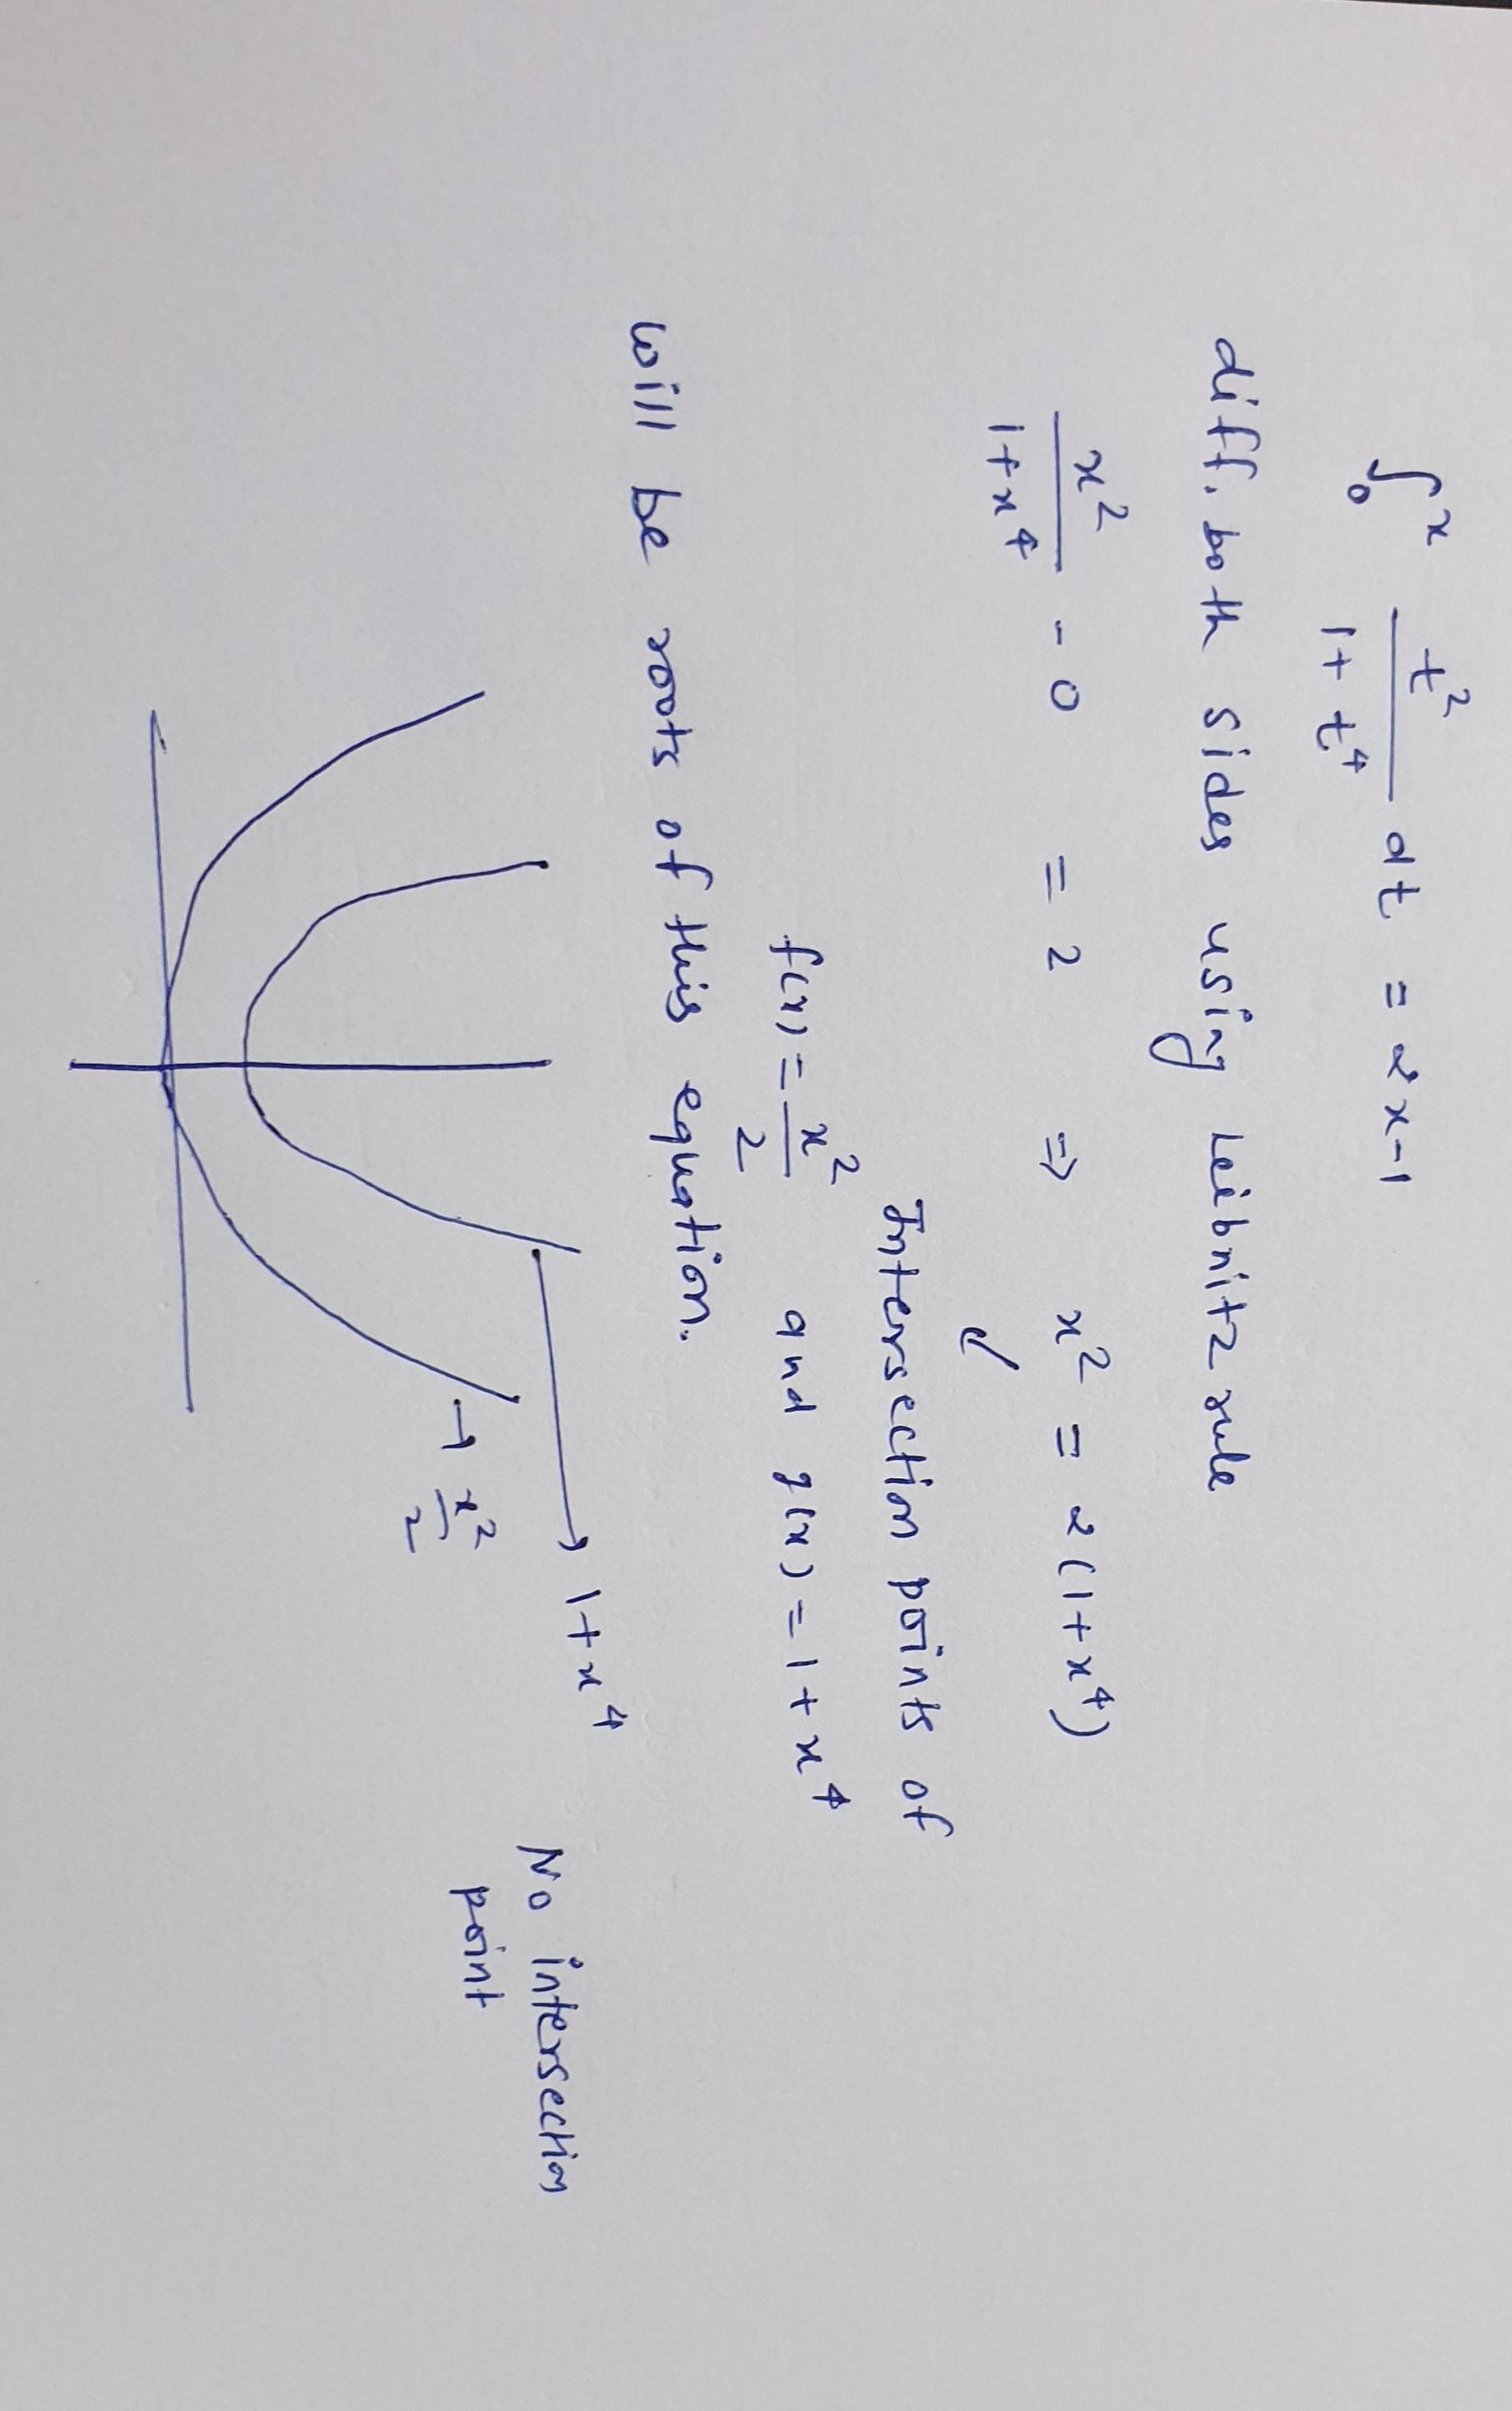 ∫₀ˣ t²/(1+t⁴) dt = 2x-1
diff. both sides using Leibnitz rule
x²/(1+x⁴) - 0 = 2 ⇒ x² = 2(1+x⁴)
Intersection points of
f(x) = x²/2 and g(x) = 1+x⁴
will be roots of this equation.
→ 1+x⁴
→ x²/2
No intersection
point